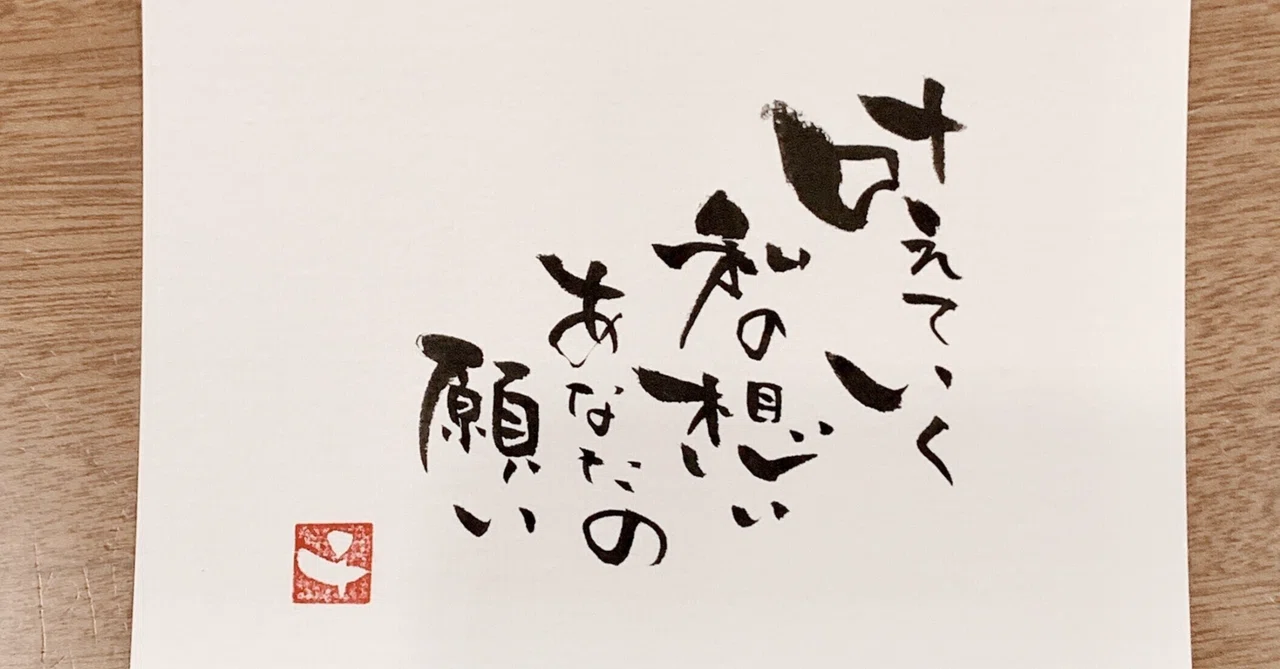 叶えていく
私の想い
あなたの
願い